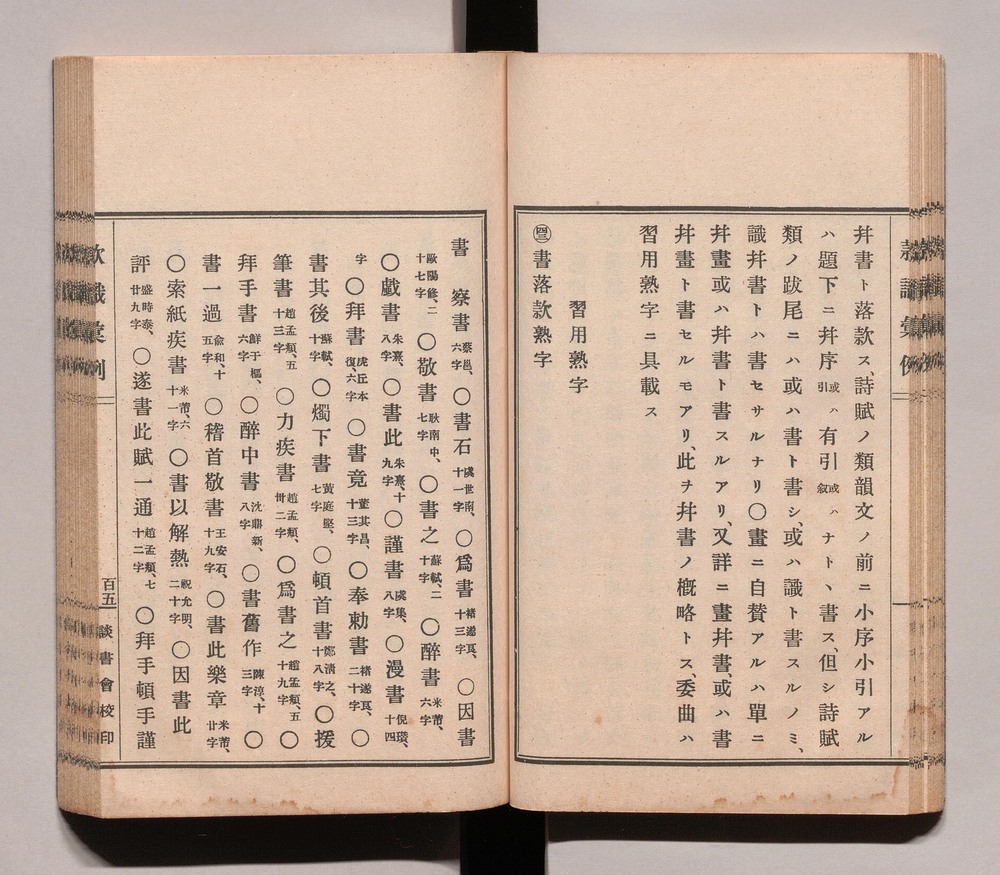 幷書ト落款ス、詩賦ノ類韻文ノ前ニ小序小引アル
ハ題下ニ幷序或ハ引有引或ハ叙ナト、書ス、但シ詩賦
類ノ跋尾ニハ或ハ書ト書シ、或ハ識ト書スルノミ、
識幷書トハ書セサルナリ〇畫ニ自贊アルハ單ニ
幷畫或ハ幷書ト書スルアリ、又詳ニ畫幷書、或ハ書
幷畫ト書セルモアリ、此チ幷書ノ槪略トス、委曲ハ
習用熟字ニ具載ス
習用熟字
㊃書落款熟字
書 察書蔡邕、六字〇書石虞世南、十一字〇爲書褚遂良、十三字〇因書
歐陽修、二十七字〇敬書耿南中、七字〇書之蘇軾、二十字〇醉書米芾、六字
〇戯書朱熹、八字〇書此朱熹、十九字〇謹書虞集、八字〇漫書倪瓚、十四
字〇拜書虎丘本復、六字〇書竟董其昌、十三字〇奉勅書褚遂良、二十字〇
書其後蘇軾、十字〇燭下書黃庭堅、七字〇頓首書鄭淸之、十八字〇援
筆書趙孟頫、五十三字〇力疾書趙孟頫、卅二字〇爲書之趙孟頫、五十九字〇
拜手書鮮于樞、六字〇醉中書沈鼎新、八字〇書舊作陳淳、十三字〇
書一過兪和、十五字〇稽首敬書王安石、十九字〇書此樂章米芾、廿字
〇索紙疾書米芾、六十一字〇書以解熱祝允明、二十字〇因書此
評盛時泰、廿九字〇遂書此賦一通趙孟頫、七十二字〇拜手頓手謹
百五 談書會校印